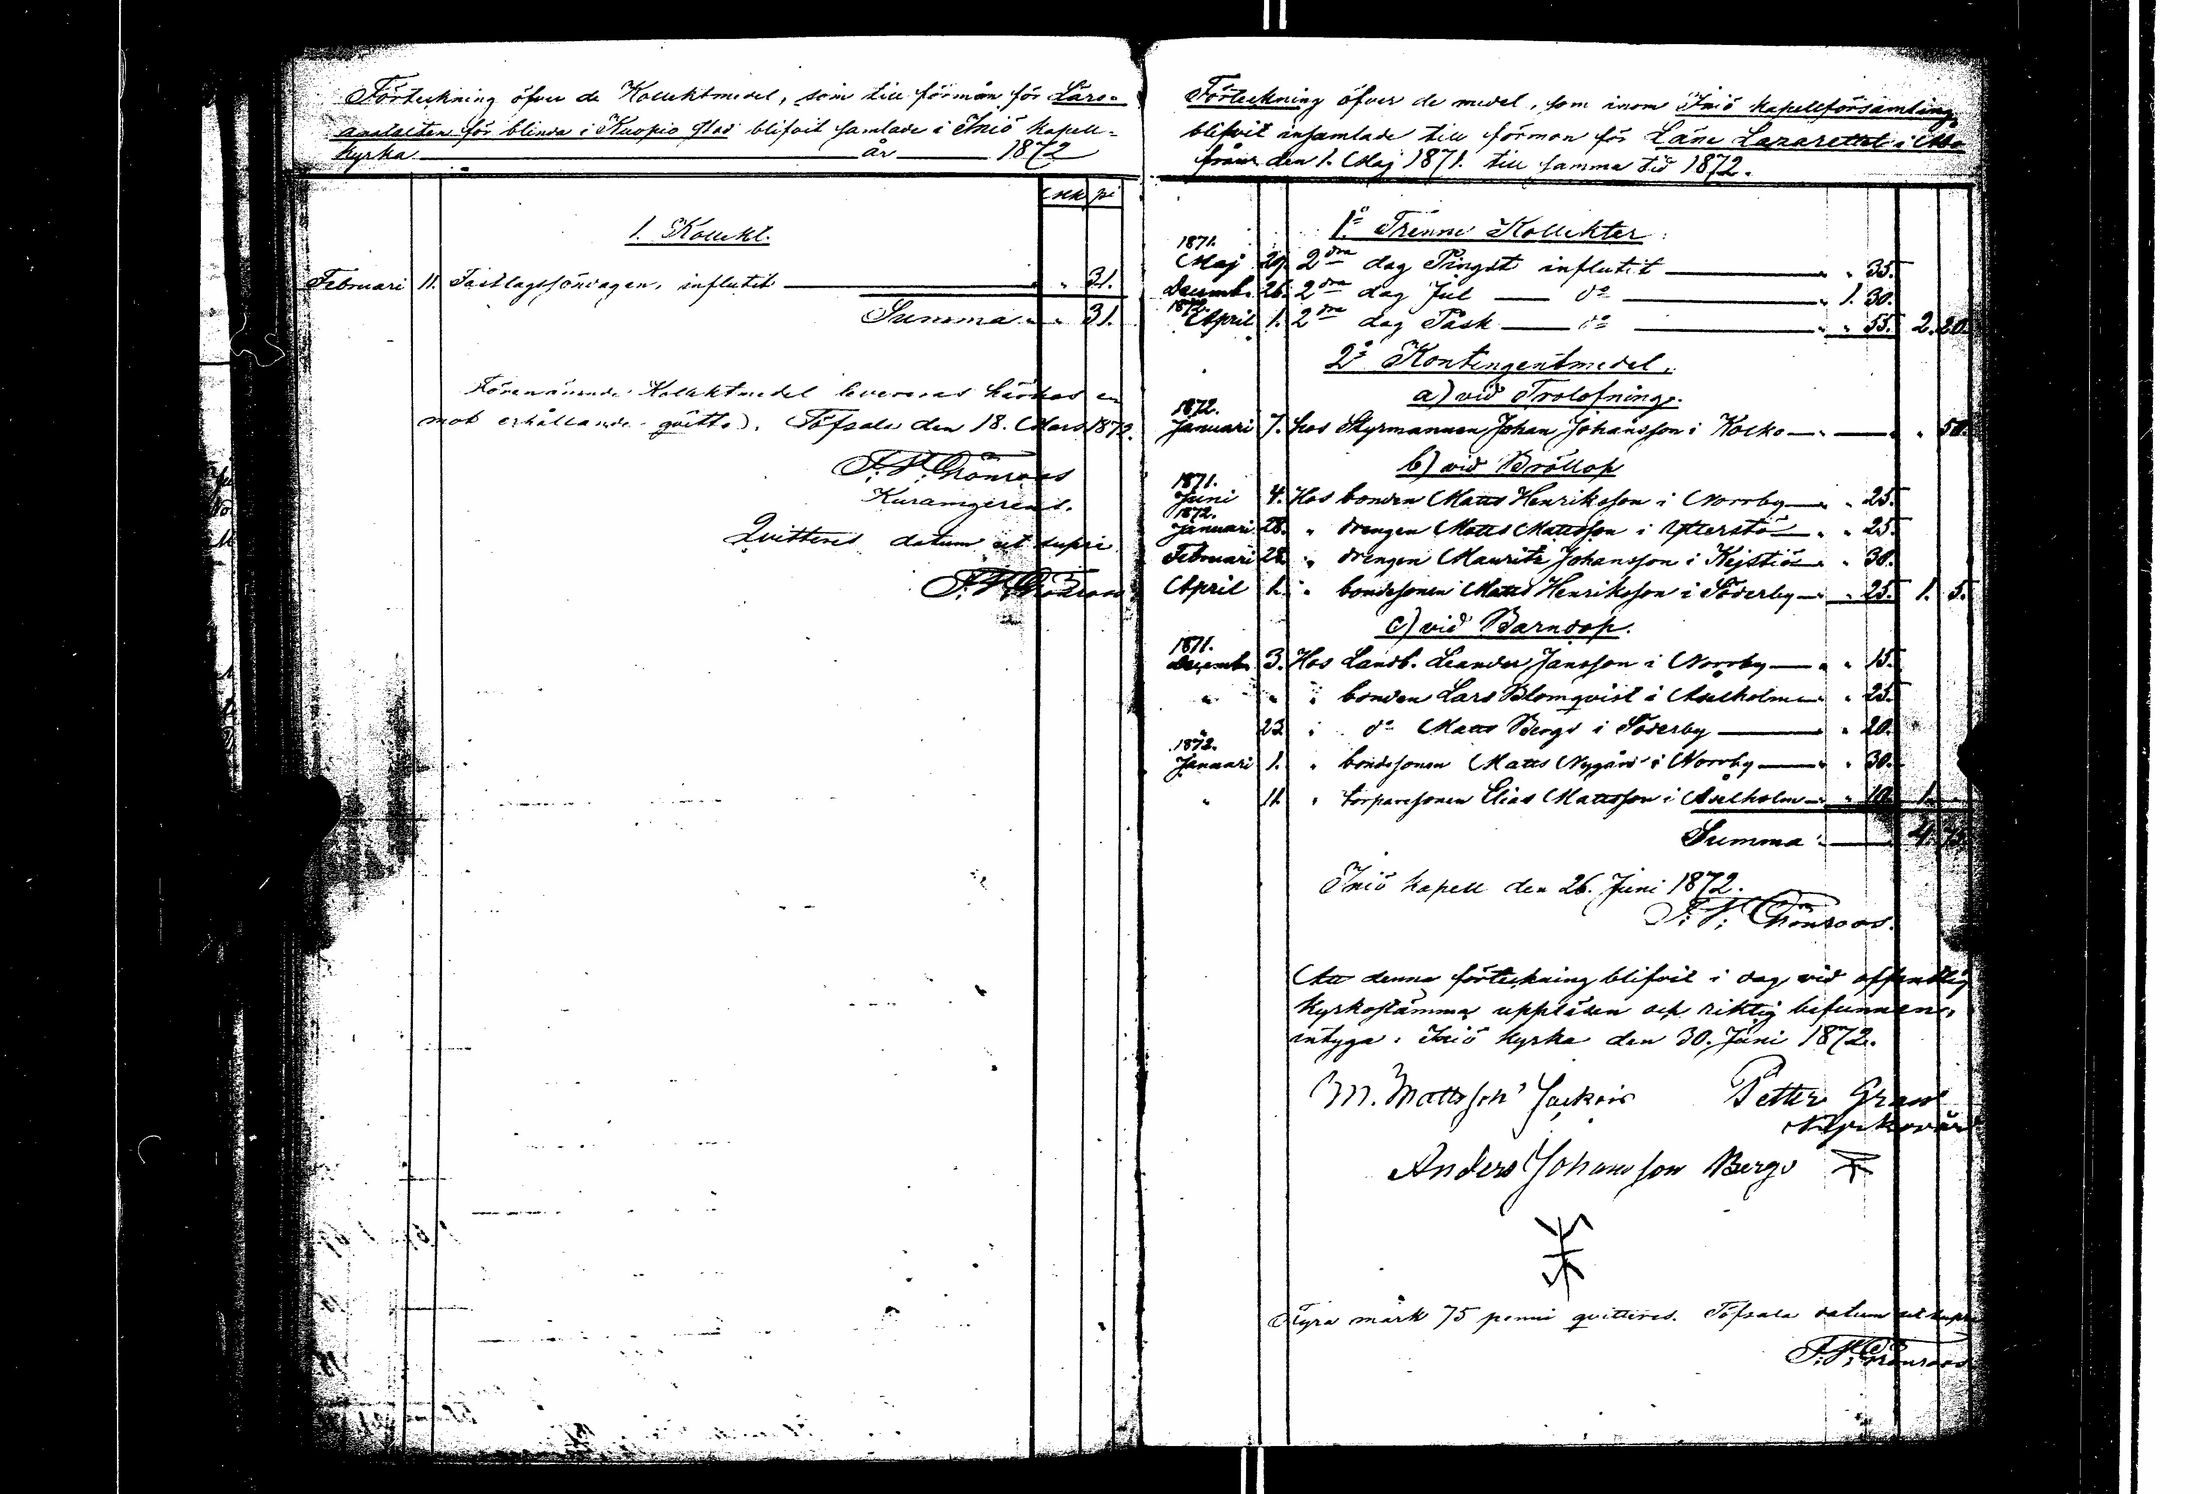 Förteckning öfver de Kollektmedel, som till förmån för Läro-
anstalten för blinda i Kuopio stad blifvit samlade i Iniö kapell-
kyrka år 1872
mk pi
1. Kollekt.
Februari 11. Fastlagssöndagen, influtit " 31.
Summa " 31.
Förenämnde Kollektmedel levereras härhos e-
mot erhållande qvitto. Töfsala den 18. Mars 1872.
F. F. Grönroos
Kuramgerens.
Qvitteras datum ut supra
F. F. Grönroos
Förteckning öfver de medel, som inom Iniö kapellförsamling
blifvit insamlade till förmon för Läns Lazarettet i Åbo
från den 1. Maj 1871 till samma tid 1872.
1:o Trenne Kollekter:
1871.
Maj 29. 2dra dag Pingst influtit " 35.
Decemb. 26. 2dra dag Jul do 1. 30.
1872.
April 1. 2dra dag Påsk do " 55. 2. 20.
2:o Kontingentmedel.
a) vid Trolofning.
1872.
Januari 7. hos Styrmannen Johan Johansson i Kolko " 50.
b) vid Bröllop
1871.
Juni 4. Hos bonden Matts Henriksson i Norrby " 25.
1872.
Januari 28. " drengen Matts Mattsson i Ytterstö " 25.
Februari 28. " drengen Mauritz Johansson i Kejstiö " 30.
April 1. " bondesonen Matts Henriksson i Söderby " 25. 1. 5.
c) vid Barndop.
1871.
Decemb. 3. Hos Landb. Leander Jansson i Norrby " 15.
" " " bonden Lars Blomqvist i Åselholm " 25.
" 23 " do Matts Bergs i Söderby " 20.
1872.
Januari 1. " bondesonen Matts Nygård i Norrby " 30.
" 11. " torparesonen Elias Mattsson i Åselholm " 10. 1.
Summa 4. 75.
Iniö kapell den 26. Juni 1872.
F. F. Grönroos.
Att denna förteckning blifvit i dag vid offentlig
kyrkostämma uppläsen och riktig befunnen,
intyga. Iniö kyrka den 30. Juni 1872.
M. Mattsson Petter
Anders Johansson Bergs
Fyra mark 75 penni qvitteras. Töfsala datum ut supra
F. F. Grönroos